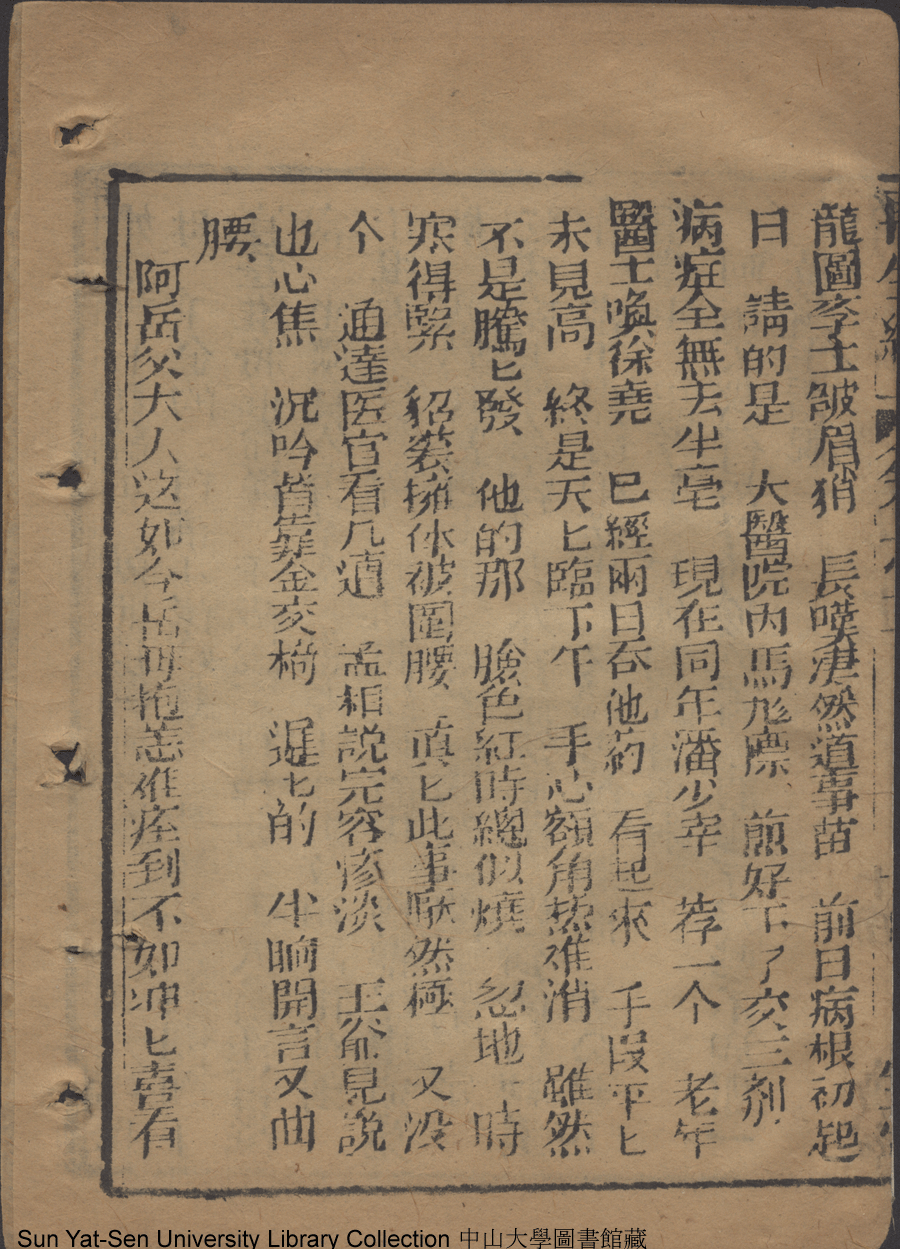 龍圖李士皱眉稍 長嘆凄然道事苗 前日病根初起
日 請的是 大醫院內馬彪 煎好下了交三剂
病症全無去半毫 現在同年潘少宰 荐一个 老年
醫士喚徐堯 已經兩日吞他葯 看起來 手段平匕
未見高 終是天匕臨下午 手心額角热难消 雖然
不是騰匕發 他的那 臉色紅時總似燒 忽地 時
寒得緊 貂裝擁体被圍腰 真匕此事 然極 又没
个 通達医官看几遭 孟相說完容疹淡 王爺見說
也心焦 沉吟背靠金交椅 遲匕的 半晌開言又曲
腰
阿岳父大人这如今岳母抱恙难痊到不如坤匕喜看
Sun Yat-Sen University Library Collection 中山大學圖書館藏